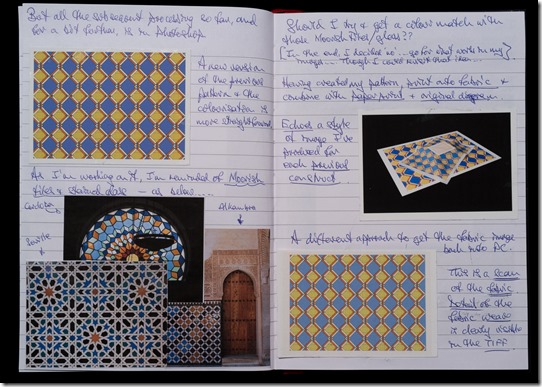 But all the subsequent processing so far, and
for a bit further, is in Photoshop
A new version
of the previous
pattern & the
colourisation is
more straightforward.
As I'm working on it, I'm reminded of Moorish
tiles & stained glass — as below....
Cordoba
Alhambra
Seville
Should I try & get a colour match with
those Moorish tiles/glass??
[In the end, I decided 'no'... go for what works in my
image... Though I could revisit that idea...
Having created my pattern, print onto fabric &
combine with paper print & original
Echoes a style
of image I've
produced for
each
construct
A different approach to get the fabric image
back into PC.
This is a scan
of the fabric
Detail of the
fabric weave
is clearly visible
in the TIFF